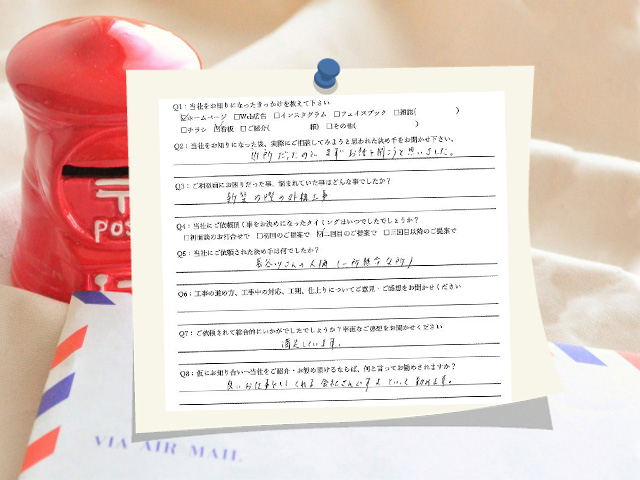 Q1：当社をお知りになったきっかけを教えて下さい
☑ホームページ □Web広告 □インスタグラム □フェイスブック □雑誌( )
□チラシ ☑看板 □ご紹介( 様) □その他( )
Q2：当社をお知りになった後、実際にご相談してみようと思われた決め手をお聞かせ下さい。
近所だったのと まず お話を聞こうと思いました。
Q3：ご相談前にお困りだった事、悩まれていた事はどんな事でしたか？
新築の際の外構工事
Q4：当社にご依頼頂く事をお決めになったタイミングはいつでしたでしょうか？
□初面談のお打合せで □初回のご提案で ☑二回目のご提案で □三回目以降のご提案で
Q5：当社にご依頼された決め手は何でしたか？
長谷川さんの人柄 (一所懸命な所)
Q6：工事の進め方、工事中の対応、工期、仕上りについてご意見・ご感想をお聞かせください
Q7：ご依頼されて総合的にいかがでしたでしょうか？率直なご感想をお聞かせください
満足しています。
Q8：仮にお知り合いへ当社をご紹介・お勧め頂けるならば、何と言ってお勧めされますか？
良いお仕事をしてくれる会社さんですよ といって勧めます。
POS
VIA AIR MAIL